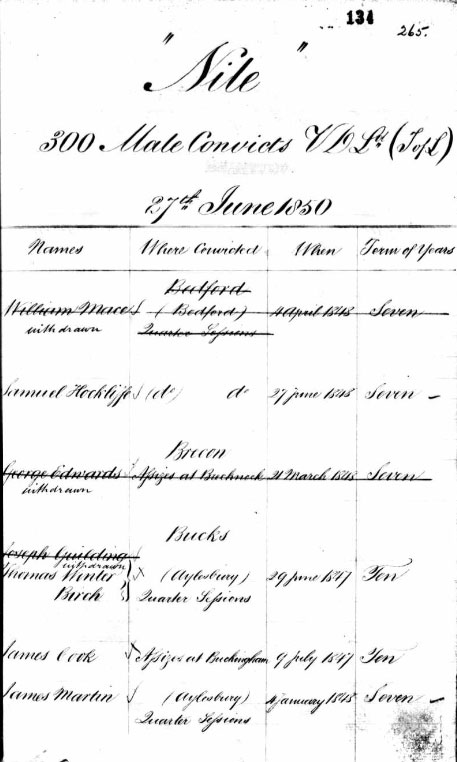 134
265.
" Nile "
300 Male Convicts V D Ld (T of L)
27th June 1850
Names Where Convicted When Term of Years
Bedford
William Mace (Bedford) 4 April 1848 Seven
withdrawn Quarter Sessions
Samuel Hockliffe (do) do 27 June 1848 Seven –
Brecon
George Edwards Assizes at 21 March 1848 Seven
withdrawn
Bucks
Joseph Guilding
withdrawn
Thomas Winter (Aylesbury) 29 June 1847 Ten
Birch Quarter Sessions
James Cook Assizes at Buckingham 9 July 1847 Ten
James Martin (Aylesbury) 4 January 1848 Seven –
Quarter Sessions